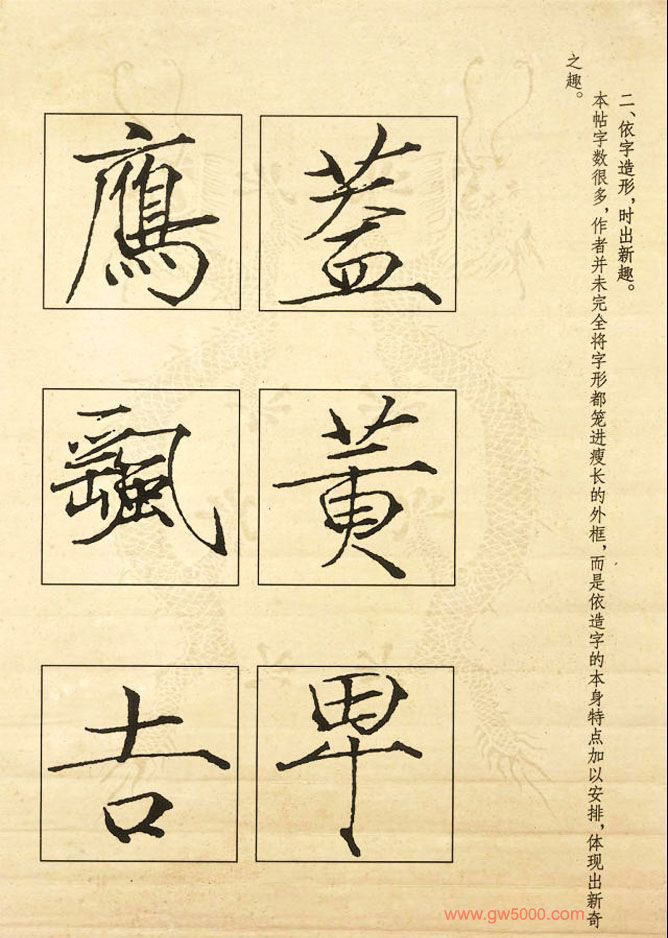 二、依字造形，时出新趣。
本帖字数很多，作者并未完全将字形都笼进瘦长的外框，而是依造字的本身特点加以安排，体现出新奇
之趣。
蓋
黄
卑
鷹
飄
吉
www.gw5000.com